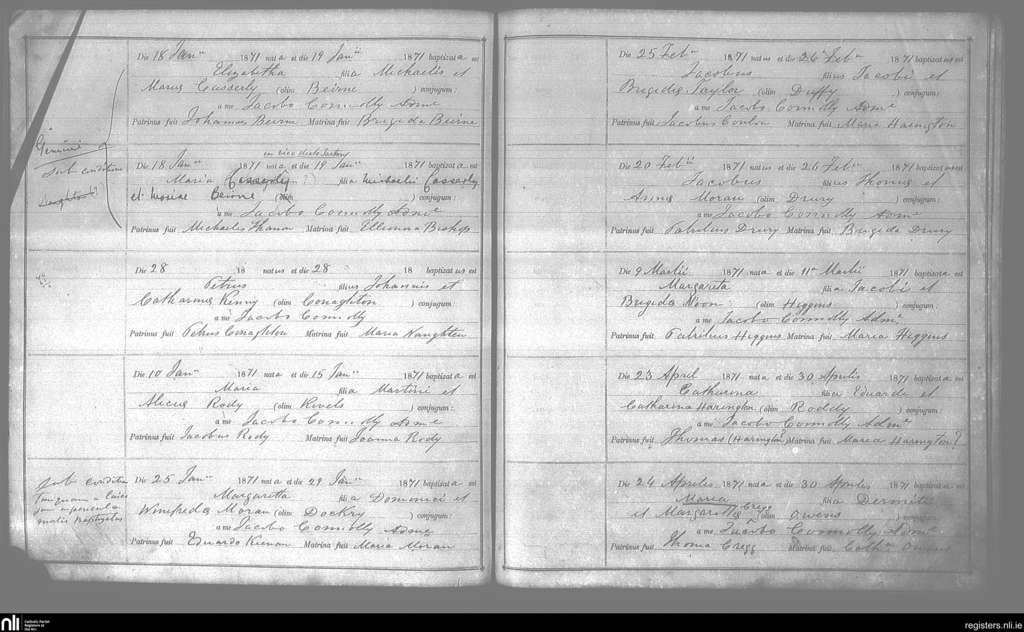 Die 18 Janii 1871 nata et die 19 Janii 1871 baptizata est
Elizabetha filia Michaelis et
Mariae Casserly (olim Beirne ) conjugum:
a me Jacobo Connolly Adme
Patrinus fuit Johannes Beirne Matrina fuit Brigida Beirne
Gemini
sub conditione
Die 18 Janii 1871 nata et die 19 Janii 1871 baptizata est
Maria Casserly filia Michaelis Casserly
et Mariae Beirne (olim ) conjugum:
a me Jacobo Connolly Adme
Patrinus fuit Michaelis Matrina fuit Bishop
Die 28 18 natus et die 28 18 baptizatus est
Petrus filius Johannis et
Catharinae Kenny (olim Conaghton ) conjugum:
a me Jacobo Connolly
Patrinus fuit Petrus Conaghton Matrina fuit Maria Naughten
Die 10 Janii 1871 nata et die 15 Janii 1871 baptizata est
Maria filia Martini et
Aliciae Rody (olim ) conjugum:
a me Jacobo Connolly Adme
Patrinus fuit Jacobus Rody Matrina fuit Joanna Rody
sub conditione
Die 25 Janii 1871 nata et die 29 Janii 1871 baptizata est
Margaretta filia Dominici et
Winefredae Moran (olim Dockry ) conjugum:
a me Jacobo Connolly Adme
Patrinus fuit Eduardo Matrina fuit Maria Moran
Die 25 Feb 1871 natus et die 26 Feb 1871 baptizatus est
Jacobus filius Jacobi et
Brigidae Taylor (olim Duffy ) conjugum:
a me Jacobo Connolly Adme
Patrinus fuit Jacobus Conlon Matrina fuit Maria Harington
Die 20 Feb 1871 natus et die 26 Feb 1871 baptizatus est
Jacobus filius Thomae et
Annae Moran (olim Drury ) conjugum:
a me Jacobo Connolly Adme
Patrinus fuit Patritius Drury Matrina fuit Brigida Drury
Die 9 Martii 1871 nata et die 11 Martii 1871 baptizata est
Margareta filia Jacobi et
Brigida Noon (olim Higgins ) conjugum:
a me Jacobo Connolly Adme
Patrinus fuit Patritius Higgins Matrina fuit Maria Higgins
Die 23 April 1871 nata et die 30 Aprilis 1871 baptizata est
Catharina filia Eduardi et
Catharina Harington (olim Roddy ) conjugum:
a me Jacobo Connolly Adme
Patrinus fuit Thomas (Harington) Matrina fuit Maria Harington?
Die 24 Aprilis 1871 nata et die 30 Aprilis 1871 baptizata est
Maria filia
et Margaritta Cregg (olim Owens ) conjugum:
a me Jacobo Connolly Adme
Patrinus fuit Thoma Cregg Matrina fuit Cath Owens
nli
Catholic Parish
Registers at
the NLI
registers.nli.ie